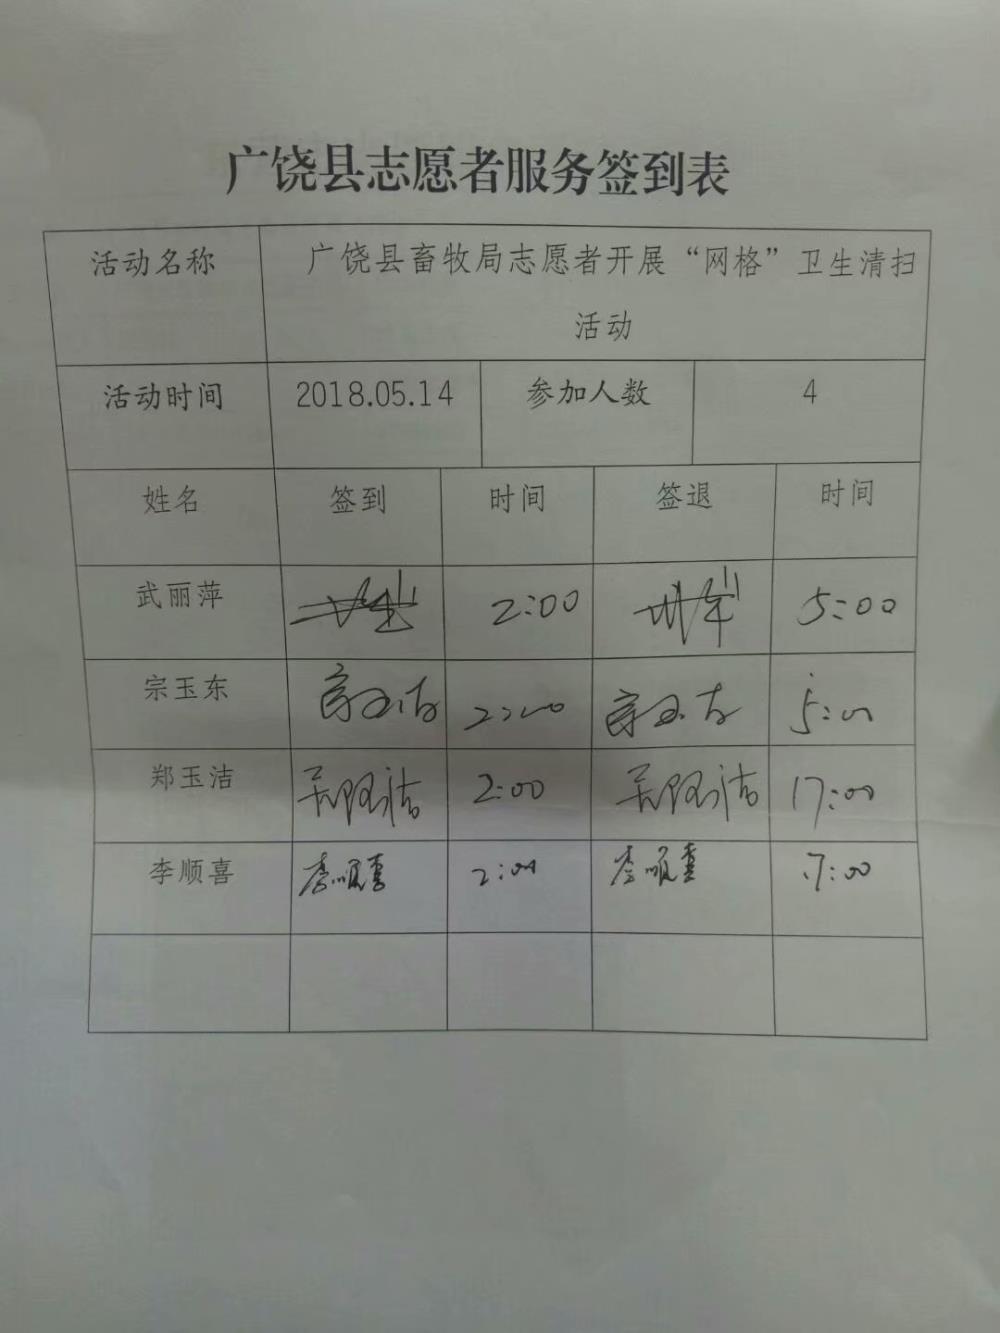 广饶县志愿者服务签到表
活动名称 广饶县畜牧局志愿者开展“网格”卫生清扫
活动
活动时间 2018.05.14 参加人数 4
姓名 签到 时间 签退 时间
武丽萍 2:00 5:00
宗玉东 宗玉东 2:00 宗玉东 5:00
郑玉洁 郑玉洁 2:00 郑玉洁 17:00
李顺喜 李顺喜 2:00 李顺喜 17:00